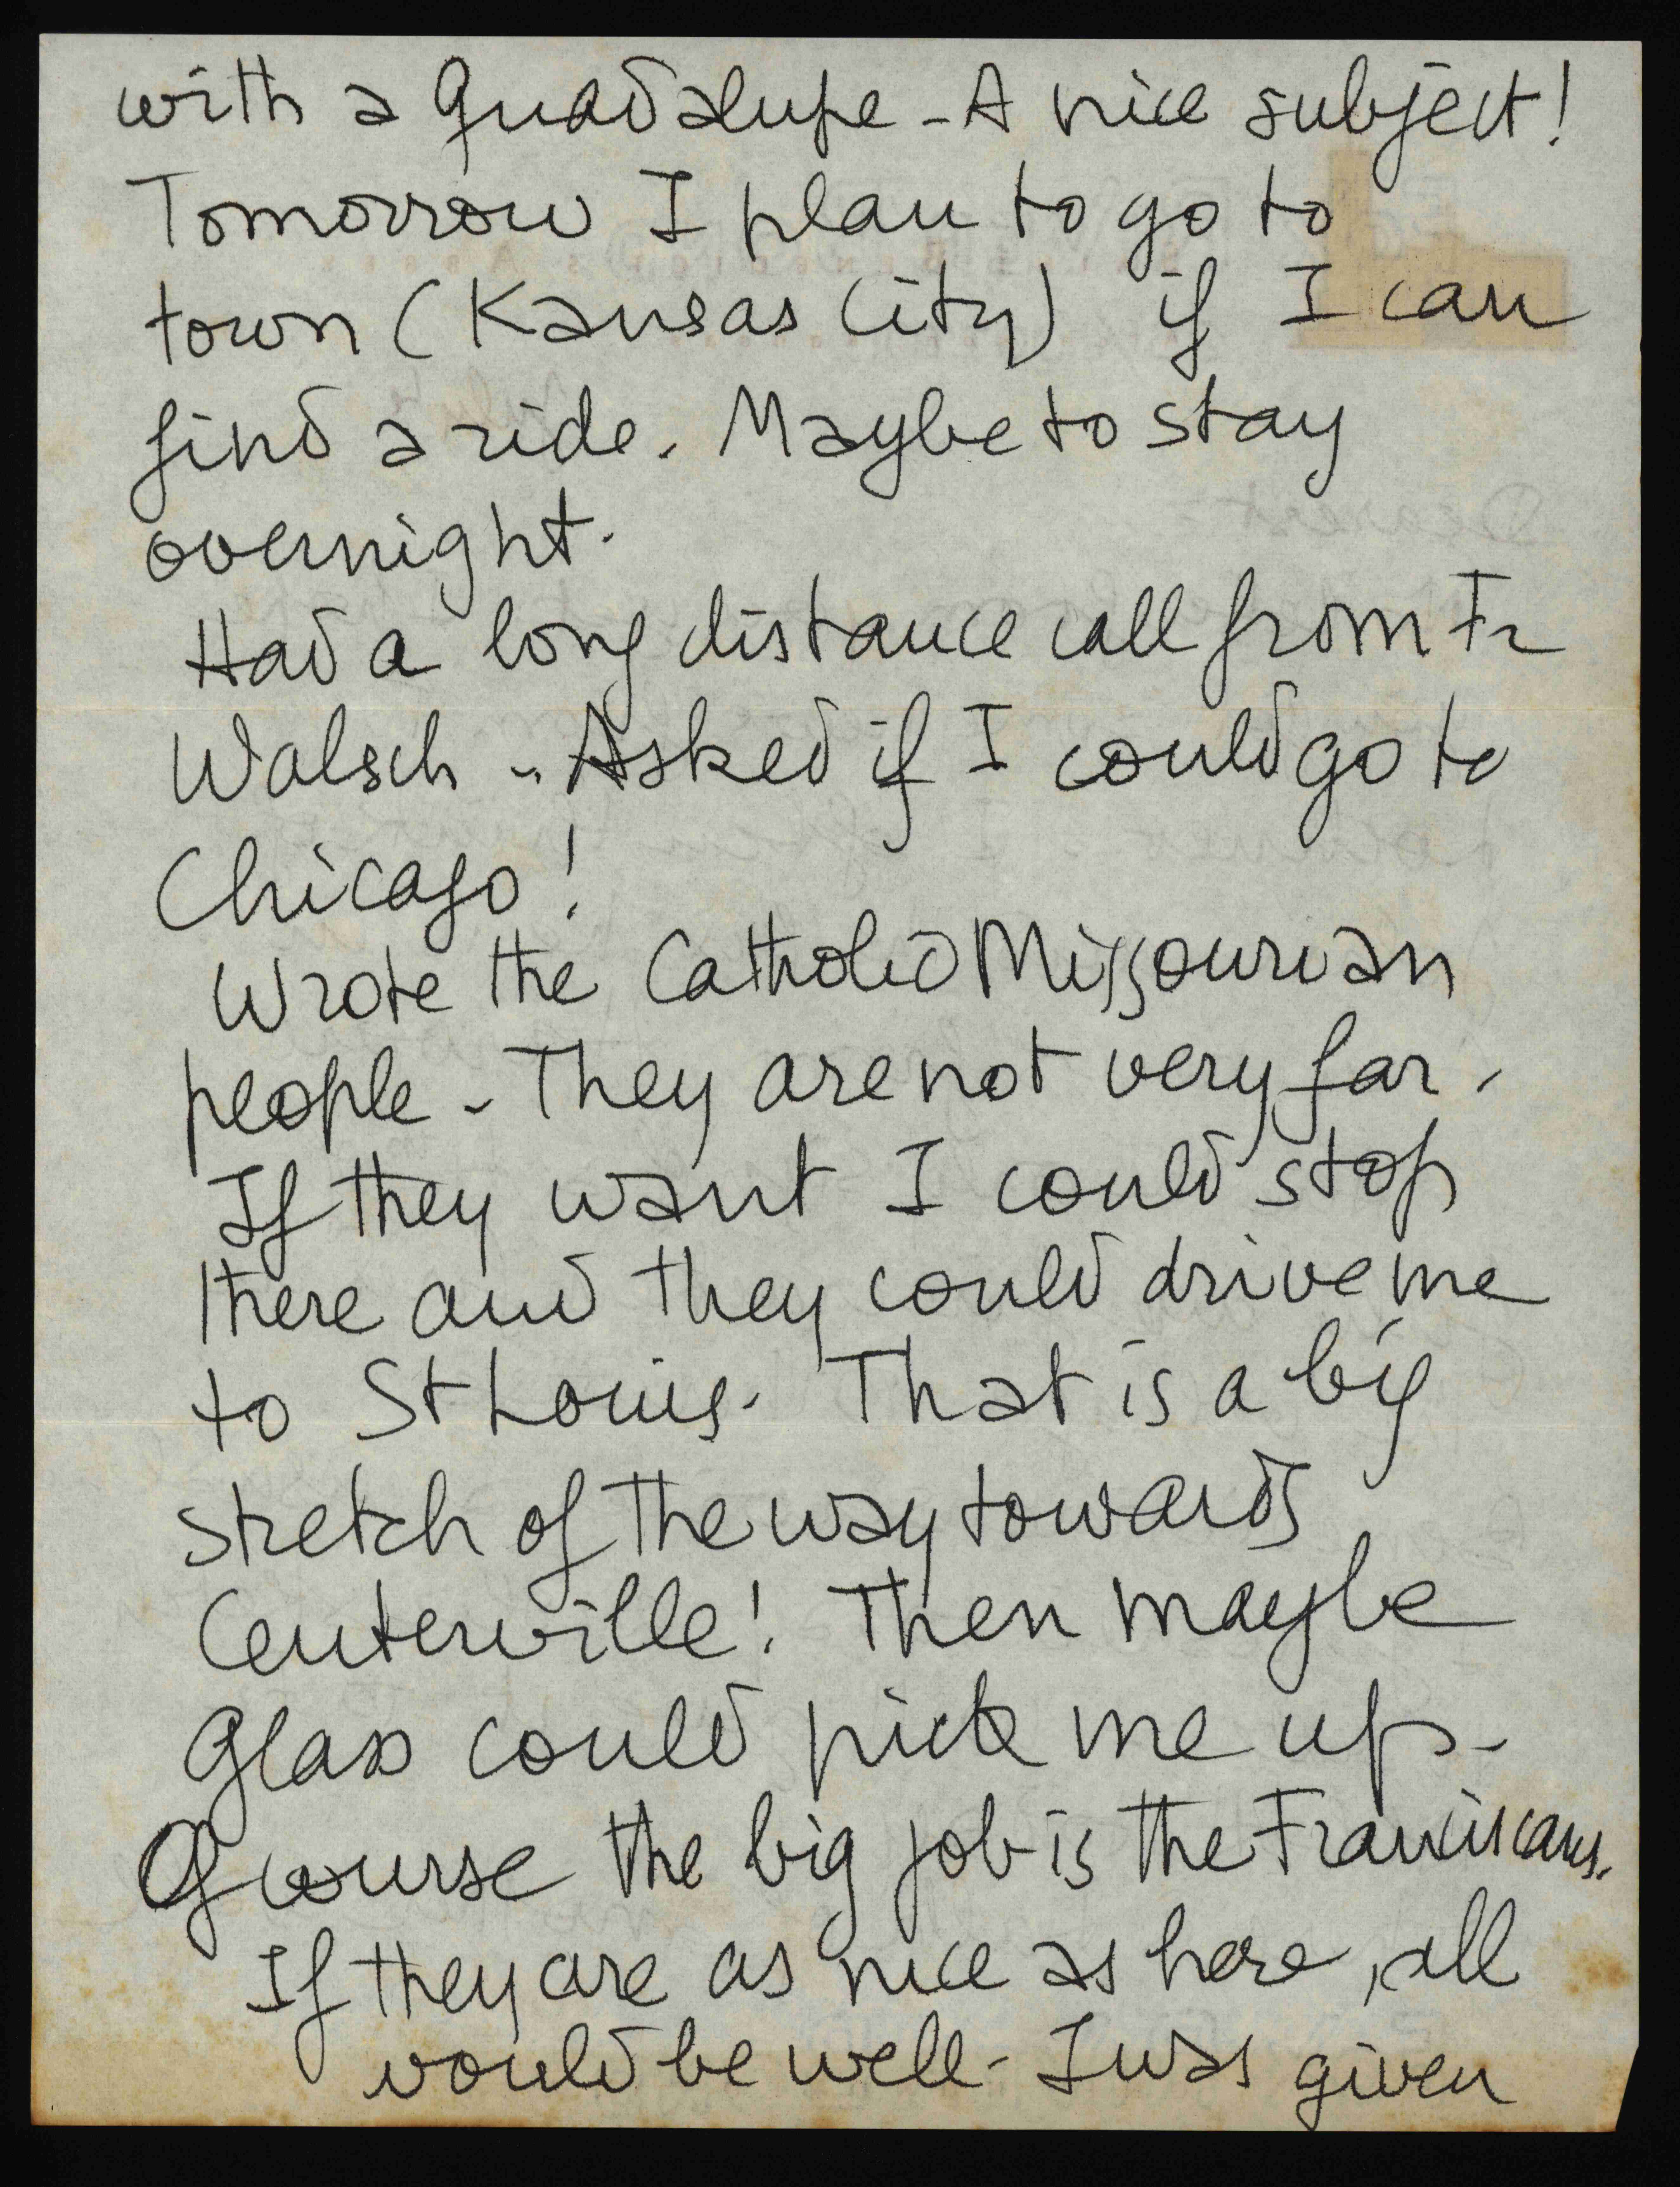 with a Guadalupe - A nice subject!
Tomorrow I plan to go to
town (Kansas City) if I can
find a ride. Maybe to stay
overnight.
Had a long distance call from Fr
Walsch - Asked if I could go to
Chicago!
Wrote the Catholic Missourian
people - They are not very far.
If they want I could stop
there and they could drive me
to St Louis. That is a big
stretch of the way towards
Centerville! Then maybe
could pick me up -
Of course the big job is the Franciscans.
If they are as nice as here, all
would be well - I was given